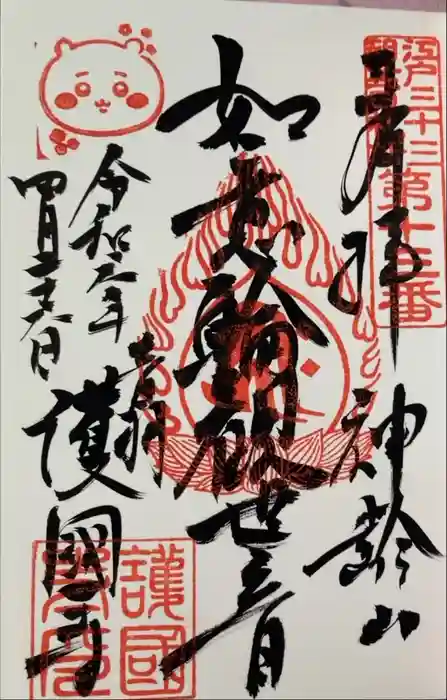 江戸三十三第十三番
奉拝 神齢山
如意輪観世音
音羽
護國寺
令和六年
四月二十六日
護國